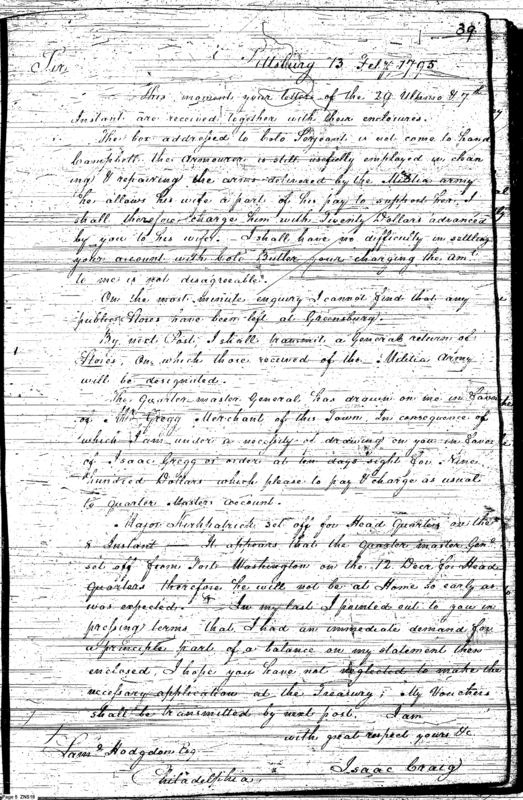 39
Pittsburg 13 Feby 1795
Sir
This moment your letters of the 29 Ultimo & 7th
Instant are received together with their enclosures.
The box addressed to Colo Serjeant is not come to hand
Campbell the Armourer is still usefully employed in clean
ing & repairing the arms delivered by the Militia army
he allows his wife a part of his pay to support her, I
shall therefore charge him with Twenty Dollars advanced
by you to his wife. I shall have no difficulty in settling
your account with Colo Butler your charging the amt
to me is not disagreeable.
On the most minute enquiry I cannot find that any
public Stores have been left at Greensburg.
By next Post, I shall transmit a General return of
Stores, on which those received of the Militia Army
will be designated.
The Quarter master General has drawn on me in favor
of Gregg Merchant of this Town, In consequence of
which I am under a necessity of drawing on you in favor
of Isaac Gregg or order at ten days sight for Nine
hundred Dollars which please to pay & charge as usual
to Quarter Masters account.
Major Kirkpatrick set off for Head Quarters on the
8 Instant — It appears that the Quarter master Genl
set off from Fort Washington on the 12 Decr for Head
Quarters therefore he will not be at Home so early as
was expected. In my last I pointed out to you in
pressing terms that I had an immediate demand for
a principle part of a balance on my statement then
enclosed, I hope you have not neglected to make the
necessary application at the Treasury; My Vouchers
shall be transmitted by next post. I am
with great respect yours &c
Saml Hodgdon Esq
Isaac Craig
Philadelphia
Page 5 ZNS16